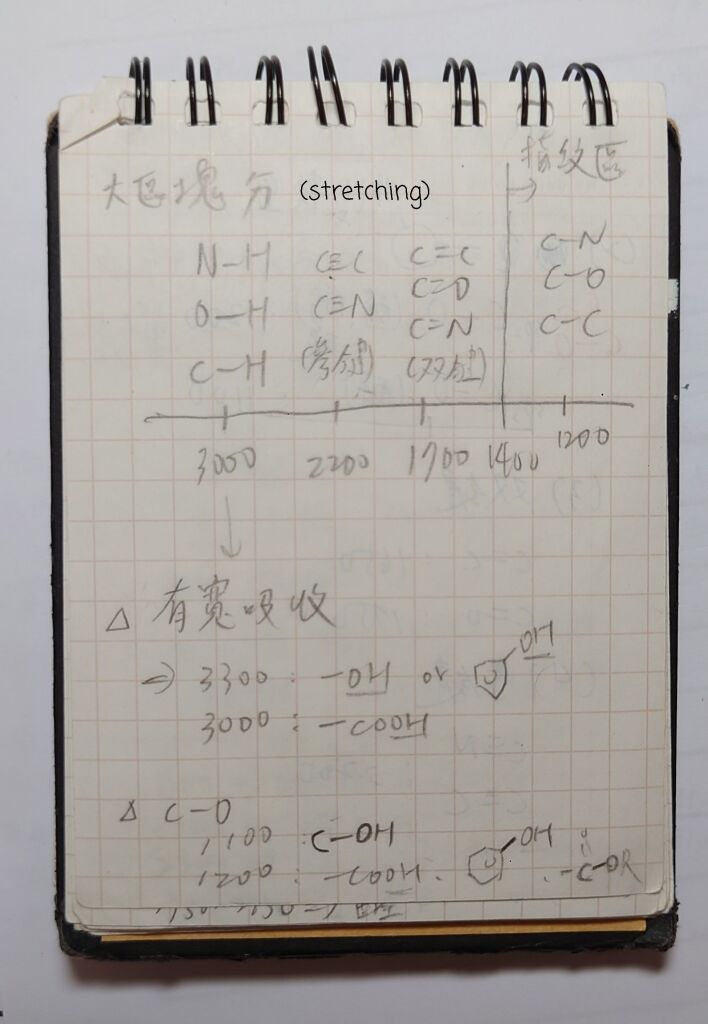 指紋區
大區塊分 (stretching)
N-H C≡C C=C C-N
O-H C≡N C=O C-O
C-H (參键) C=N C-C
(双键)
3000 2200 1700 1400 1200
↓
△ 有寬吸收
⇒ 3300 : -OH or OH
3000 : -COOH
△ C-O
1100 : C-OH
1200 : -COOH . OH . -C-OR